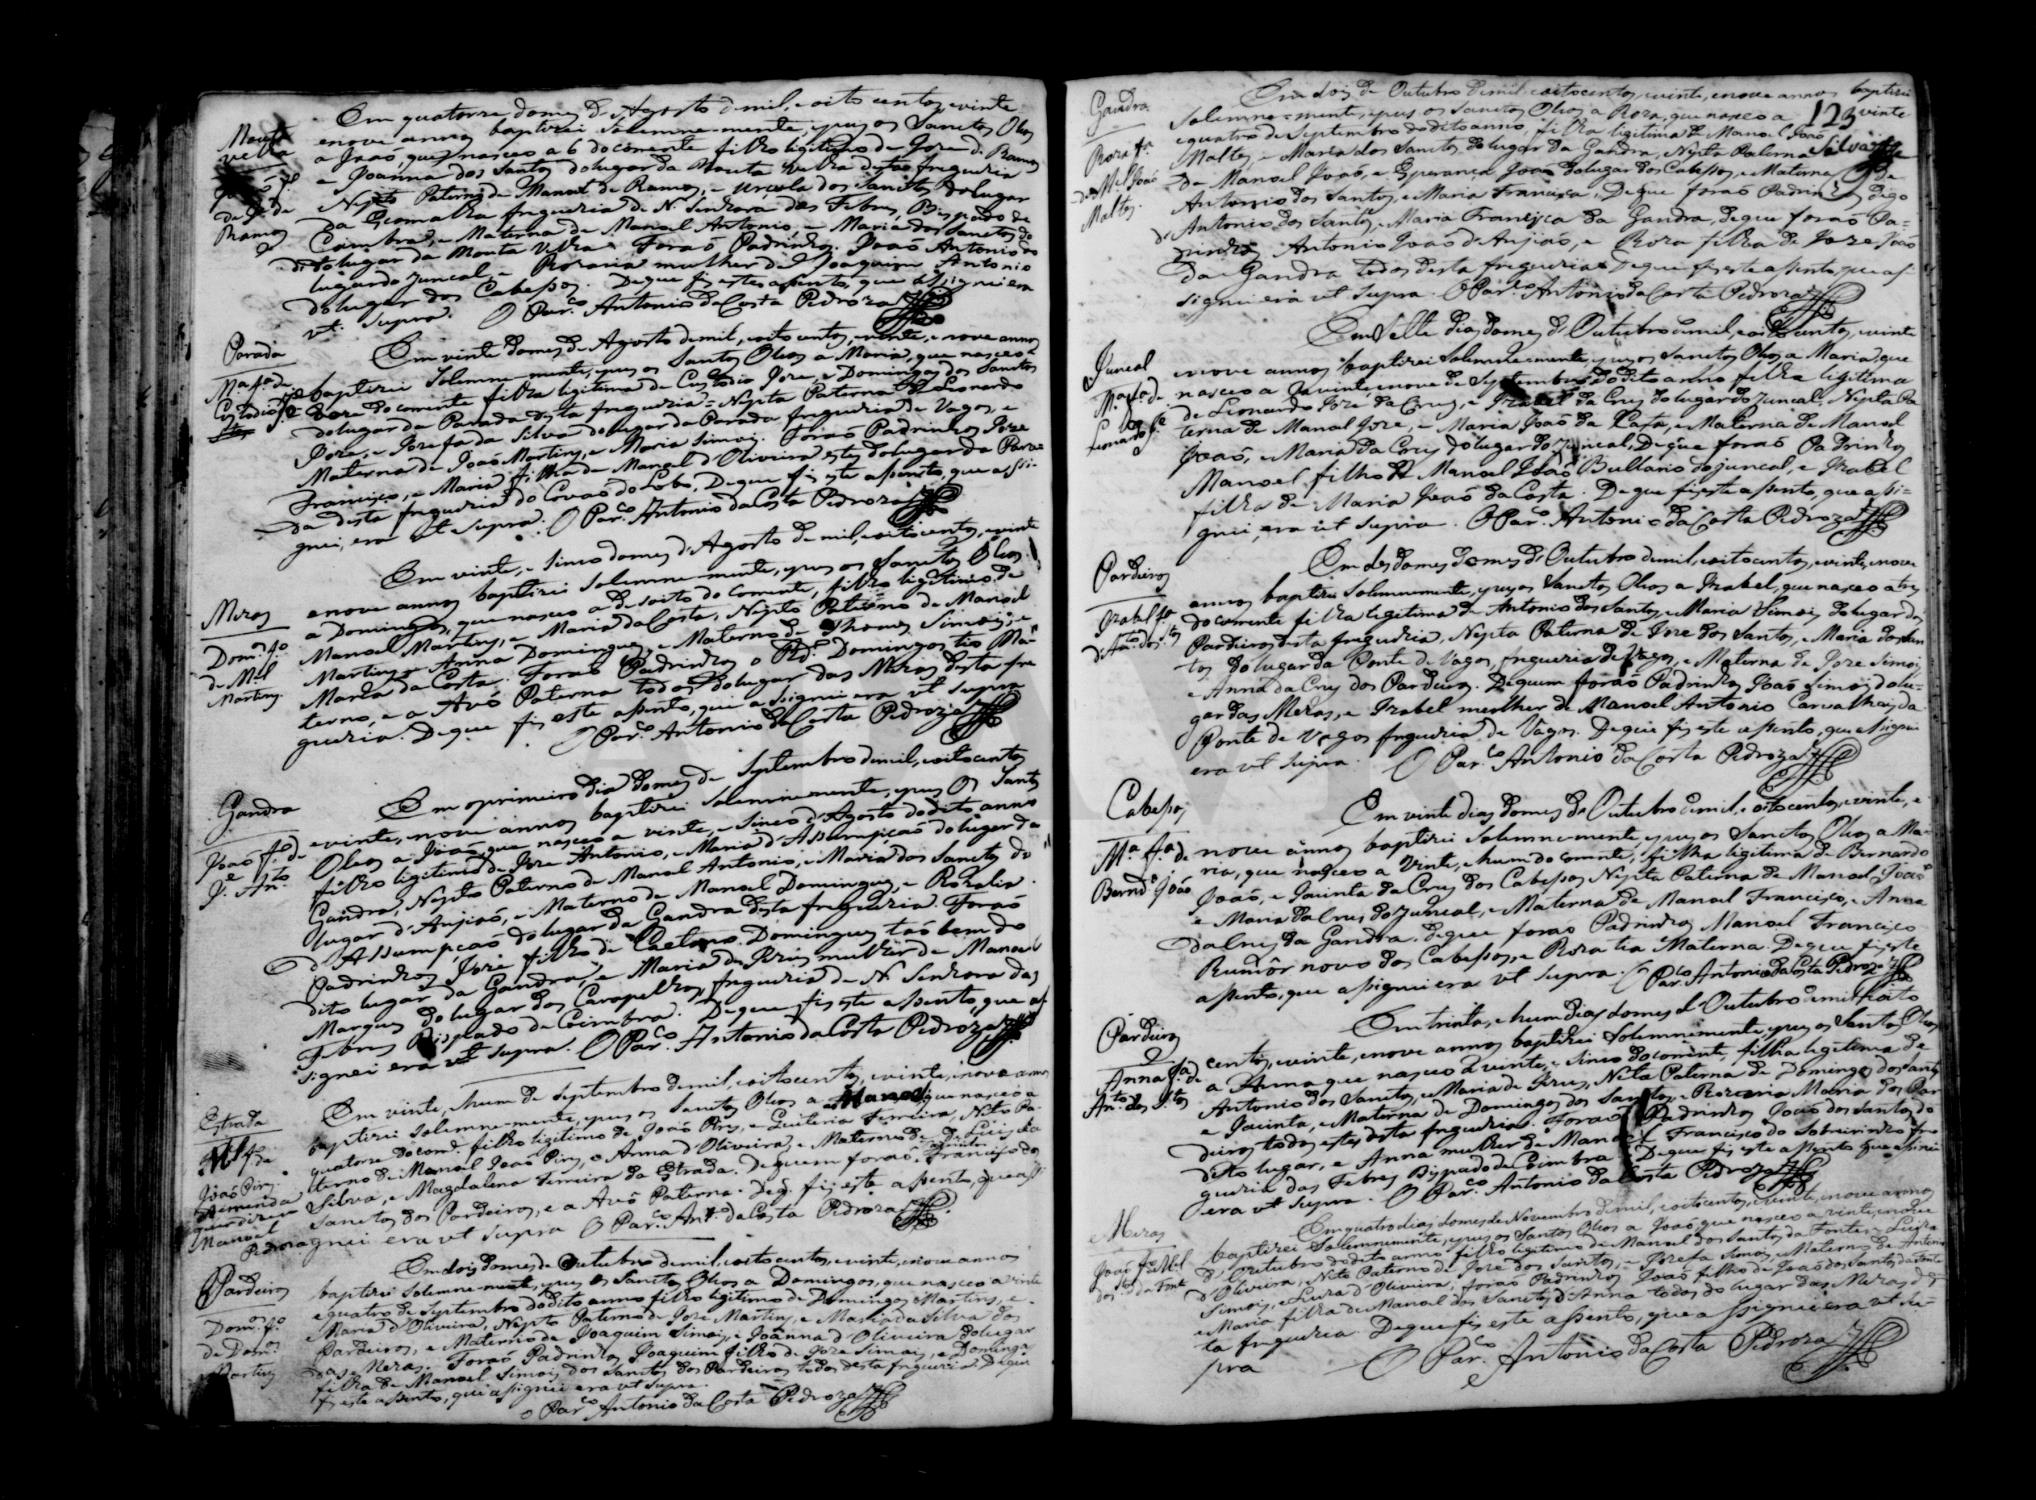 Em quatorze do mes de Agosto de mil, e oito centos, e vinte
Mouta
velha
e nove annos baptizei solemne-mente, e pus os Sanctos Oleos
a Joaõ, que nasceo a 6 do corrente filho ligitimo de Joze de Ramos
e Joanna dos Santos do lugar da Mouta velha desta freguezia
de Je. de
Ramos
Neppto Paterno de Manoel de Ramos, e Ursola dos Sanctos do lugar
freguezia de N. Senhora das Febres, Bispado de
Coimbra, e Materno de Manoel Antonio, e Maria dos Sanctos do
dito lugar da Mouta Velha. Foraõ Padrinhos Joaõ Antonio do
lugar do Juncal, e mulher de Joaquim Antonio
do lugar dos Cabessos. De que fis este assento, que assignei era
ut supra. O Par.co Antonio da Costa Pedroza
Parada
Em vinte do mes de Agosto de mil, e oito centos, e vinte, e nove annos
Ma. fa. de
Custodio Je.
baptizei solemne-mente, e pus os Santos Oleos a Maria, que nasceo a
doze do corrente filha ligitima de Custodio Joze, e Domingas dos Sanctos
do lugar da Parada desta freguezia = Neppta Paterna de Leonardo
Joze, e Jozefa da Silva do lugar da Parada freguezia de Vagos, e
Materna de Joaõ Martins, e Maria Simois. Foraõ Padrinhos Joze
Francisco, e Maria filha de Manoel d'Oliveira estes do lugar da Para-
da desta freguezia do Covaõ do Lobo. De que fis este assento, que assi-
gnei, era ut supra. O Par.co Antonio da Costa Pedroza
Em vinte, e sinco do mes d'Agosto de mil, e oito centos, e vinte
Meras
e nove annos baptizei solemne-mente, e pus os Sanctos Oleos
Domos. fo.
de Mel.
Martins
a Domingos, que nasceo a desoito do corrente, filho ligitimo de
Manoel Martins, e Maria da Costa, Neppto Paterno de Manoel
Martins, e Anna Domingues, e Materno de Thomes Simois, e
Maria da Costa. Foraõ Padrinhos o Rdo. Domingos tio Ma-
terno, e a Avó Paterna todos do lugar das Meras desta fre
guezia. De que fis este assento, que assignei era ut supra
O Par.co Antonio da Costa Pedroza
Gandra
Em o primeiro dia do mes de Septembro de mil, e oito centos
Joaõ fo. de
Je. Anto.
e vinte, e nove annos baptizei solemne mente, e pus os Santos
Oleos a Joaõ que nasceo a vinte, e sinco d'Agosto do dito anno
filho ligitimo de Joze Antonio, e Maria d'Assumpçaõ do lugar da
Gandra, Neppto Paterno de Manoel Antonio, e Maria dos Sanctos do
lugar d'Anjiaõ, e Materno de Manoel Domingues, e Rozalia
d'Assumpçaõ do lugar da Gandra desta freguezia. Foraõ
Padrinhos Joze filho de Caetano Domingues taõ bem do
dito lugar da Gandra, e Maria de Jezus mulher de Manoel
Marques do lugar dos Carapelhos freguezia de N. Senhora das
Febres Bispado de Coimbra. De que fis este assento, que as-
signei era ut supra. O Par.co Antonio da Costa Pedroza
Estrada
Em vinte, e hum de Septembro de mil, e oito centos, e vinte, e nove annos
Mel. fo. de
Joaõ Pires
Emenda
que dizia
Manoel
Pedroza
baptizei solemne-mente, e pus os Sanctos Oleos a Manoel, que nasceo a
quatorze do corre. filho ligitimo de Joaõ Pires, e Luiteria Ferreira, Neto Pa-
terno de Manoel Joaõ Pires, e Anna d'Oliveira, e Materno de Luis da
Silva, e Magdalena Ferreira da Estrada. De quem foraõ Francisco dos
Sanctos dos Pardeiros, e a Avó Paterna. De q. fis este assento, que assi
gnei era ut supra O Par.co Anto. da Costa Pedroza
Pardeiros
Em dois do mes de Outubro de mil, e oito centos, e vinte, e nove annos
Domos. fo.
de Domos.
Martins
baptizei solemne-mente, e pus os Sanctos Oleos a Domingos, que nasceo a vinte
e quatro de Septembro do dito anno filho ligitimo de Domingos Martins, e
Maria d'Oliveira, Neppto Paterno de Joze Martins, e Maria da Silva dos
Pardeiros, e Materno de Joaquim Simois, e Joanna d'Oliveira do lugar
das Meras. Foraõ Padrinhos Joaquim filho de Joze Simois, e Domingas
filha de Manoel Simois dos Sanctos dos Pardeiros todos desta freguezia. De que
fis este assento, que assignei era ut supra.
O Par.co Antonio da Costa Pedroza
123
Gandra
Em dois de Outubro de mil e oito centos, e vinte, e nove annos baptizei
Roza fa.
de Mel. Joaõ
Maltes
solemne-mente, e pus os Sanctos Oleos a Roza, que nasceo a vinte
e quatro de Septembro do dito anno, filha ligitima de Manoel Joaõ
Maltes, e Maria dos Sanctos do lugar da Gandra, Neppta Paterna
de Manoel Joaõ, e Esperança Joaõ do lugar dos Cabessos, e Materna de
Antonio dos Santos, e Maria Francisca, De que foraõ Padrinhos digo
de Antonio dos Santos, e Maria Francisca da Gandra, de que foraõ Pa-
drinhos Antonio Joaõ d'Anjiaõ, e Roza filha de Joze Joaõ
da Gandra todos desta freguezia. De que fis este assento, que as-
signei era ut supra. O Par.co Antonio da Costa Pedroza
Em sette dias do mes de Outubro de mil, e oito centos, e vinte
Juncal
Ma. fa. de
Leonardo Je.
e nove annos baptizei solemnemente, e pus os Sanctos Oleos a Maria, que
nasceo a vinte, e nove de Septembro do dito anno filha ligitima
de Leonardo Joze da Crus, e Izabel da Crus do lugar do Juncal, Neppta Pa
terna de Manoel Joze, e Maria Joaõ da, e Materna de Manoel
Joaõ, e Maria da Crus do lugar do Juncal. De que foraõ Padrinhos
Manoel filho de Manoel Joaõ do Juncal, e Izabel
filha de Maria Joaõ da Costa. De que fis este assento, que assi-
gnei, era ut supra. O Par.co Antonio da Costa Pedroza
Pardeiros
Em des do mes de Outubro de mil, e oito centos, e vinte, e nove
Izabel fa.
de Anto. dos Stos.
annos baptizei solemnemente, e pus os Sanctos Oleos a Izabel, que nasceo a tres
do corrente filha legitima de Antonio dos Santos, e Maria Simois do lugar dos
Pardeiros desta freguezia, Neppta Paterna de Joze dos Santos, e Maria dos San
tos do lugar da Ponte de Vagos, freguezia de Vagos, e Materna de Joze Simois
e Anna da Crus dos Pardeiros. De quem foraõ Padrinhos Joaõ Simois do lu-
gar das Meras, e Izabel mulher de Manoel Antonio Carvalhais da
Ponte de Vagos freguezia de Vagos. De que fis este assento, que assignei
era ut supra. O Par.co Antonio da Costa Pedroza
Cabessos
Em vinte dias do mes de Outubro de mil, e oito centos, e vinte, e
Ma. fa. de
Berndo. Joaõ
nove annos baptizei solemne-mente, e pus os Sanctos Oleos a Ma-
ria, que nasceo a vinte, e hum do corrente, filha ligitima de Bernardo
Joaõ, e Jacinta da Crus dos Cabessos, Neppta Paterna de Manoel Joaõ
e Maria da Crus do Juncal, e Materna de Manoel Francisco, e Anna
da Crus da Gandra. De que foraõ Padrinhos Manoel Francisco
novo dos Cabessos, e Roza tia Materna. De que fis este
assento, que assignei era ut supra. O Par.co Antonio da Costa Pedroza
Pardeiros
Em trinta, e hum dias do mes d'Outubro de mil, e oito
Anna fa. de
Anto. dos Stos.
centos, e vinte, e nove annos baptizei solemnemente, e pus os Santos Oleos
a Anna que nasceo a vinte, e sinco do corrente, filha legitima de
Antonio dos Sanctos, e Maria de Jezus, Neta Paterna de Domingos dos Santos
e Jacinta, e Materna de Domingos dos Santos, e Maria dos Par
deiros todos estes desta freguezia. Foraõ Padrinhos Joaõ dos Santos do
dito lugar, e Anna mulher de Manoel Francisco do Sobreirinho fre
guezia das Febres Bispado de Coimbra. De que fis este assento que assinei
era ut supra. O Par.co Antonio da Costa Pedroza
Meras
Em quatro dias do mes de Novembro de mil, e oito centos, e vinte, e nove annos
Joaõ fo. de Mel.
dos Stos. da Fonte
baptizei solemnemente, e pus os Santos Oleos a Joaõ, que nasceo a vinte, e nove
d'Outubro do dito anno filho ligitimo de Manoel dos Santos da Fonte, e Luiza
d'Oliveira, Neto Paterno de Joze dos Santos, e Jozefa Simois, e Materno de Antonio
Simois, e Luiza d'Oliveira, foraõ Padrinhos Joaõ filho de Joaõ dos Santos da Fonte
e Maria filha de Manoel dos Sanctos d'Anna todos do lugar das Meras des
ta freguezia. De que fis este assento, que assignei era ut su-
pra O Par.co Antonio da Costa Pedroza